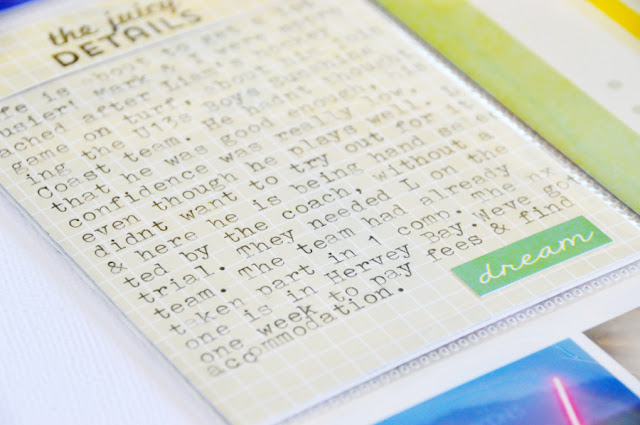 the juicy
DETAILS
fe is about to get a lot
usier! Mark & I were
ached after Liam's hockey
game on turf, about
ing the U13s Boys Sunshine
Coast team. He hadnt thought
that he was good enough, his
confidence was really low,
even though he plays well. He
didnt want to try out for it
& here he is being hand selec
ted by the coach, without a
trial. They needed L on the
team. The team had already
taken part in 1 comp. The nx
one is in Hervey Bay. Weve got
one week to pay fees & find
accommodation.
dream